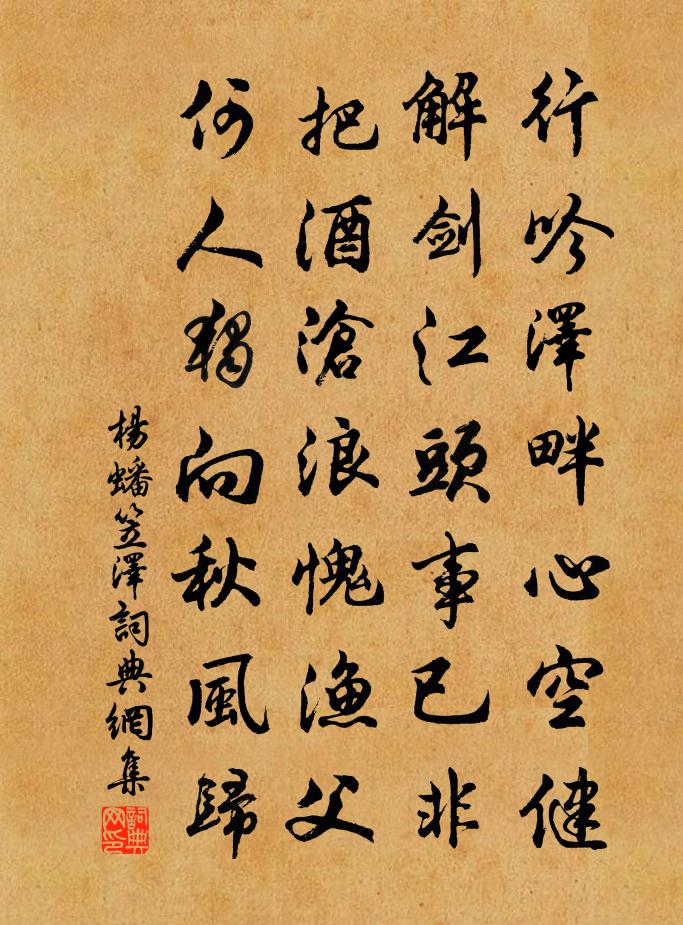 行吟澤畔心空健
解劍江頭事已非
把酒滄浪愧漁父
何人獨向秋風歸
楊蟠笠澤詞典網集
詞典網印